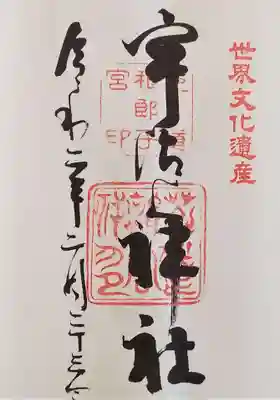 世界文化遺産
宇治上神社
令和二年二月二十三日